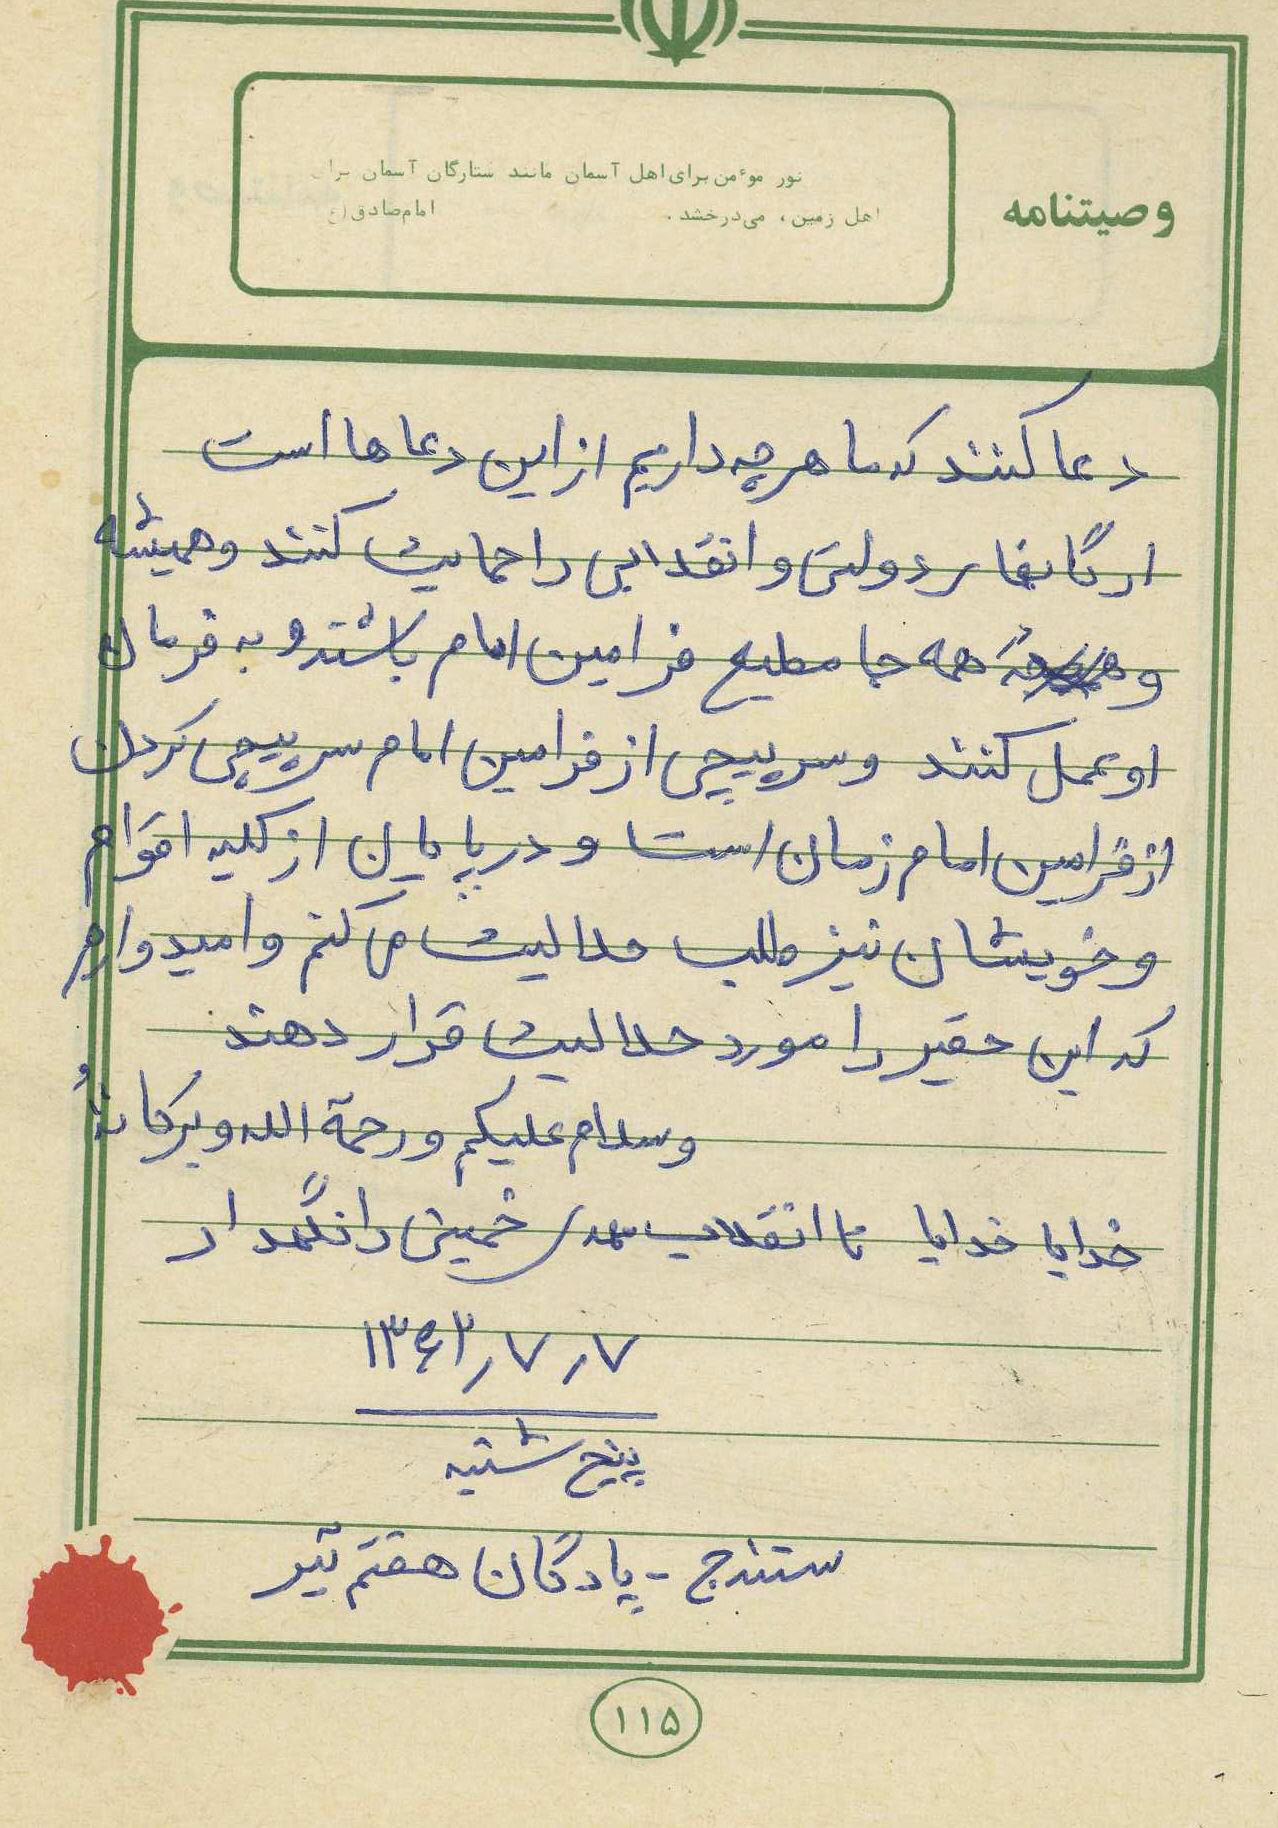 وصیتنامه
نور موءمن برای اهل آسمان مانند ستارگان آسمان برای
اهل زمین، می‌درخشد. امام صادق (ع
دعا کنند که ما هر چه داریم از این دعاها است
ارگانهای دولتی و انقلابی را حمایت کنند و همیشه
و همه جا مطیع فرامین امام باشند و به فرمان
او عمل کنند و سرپیچی از فرامین امام سرپیچی کردن
از فرامین امام زمان است و در پایان از کلیه اقوام
و خویشان نیز طلب حلالیت می کنم و امیدوارم
که این حقیر را مورد حلالیت قرار دهند
وسلام علیکم و رحمة الله و برکاتهُ
خدایا خدایا تا انقلاب مهدی خمینی را نگهدار
۱۳۶۲٫۷٫۷
پنج شنبه
سنندج - پادگان هفتم تیر
۱۱۵